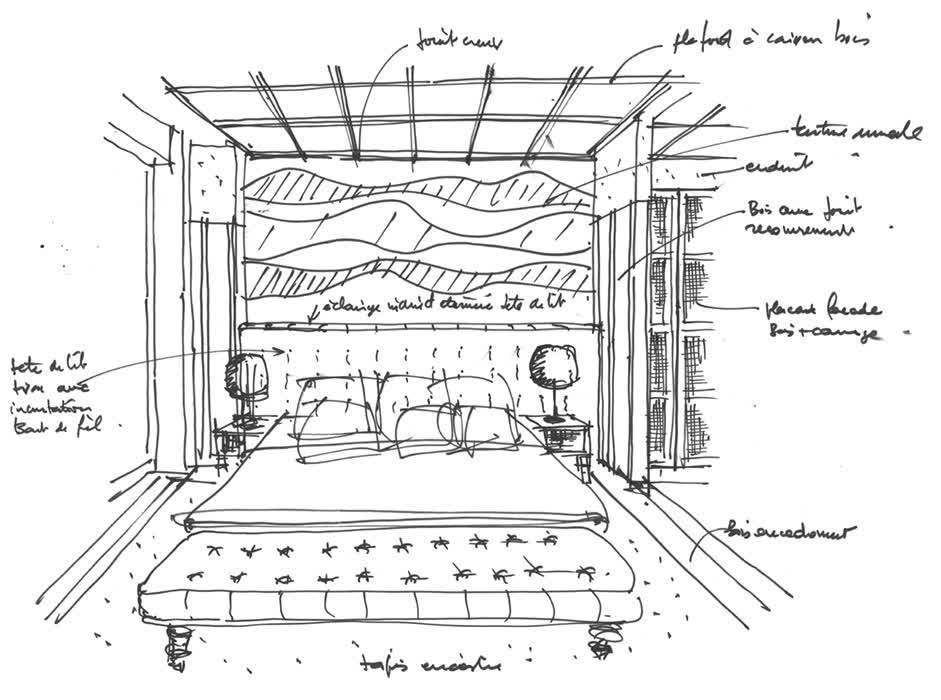 joint creux
plafond à caisson bois
tenture murale
enduit
Bois avec joint
recouvrement
éclairage indirect derrière tête de lit
placard façade
Bois + cannage
tête de lit
avec
incrustation
bois encadrement
tapis encastré